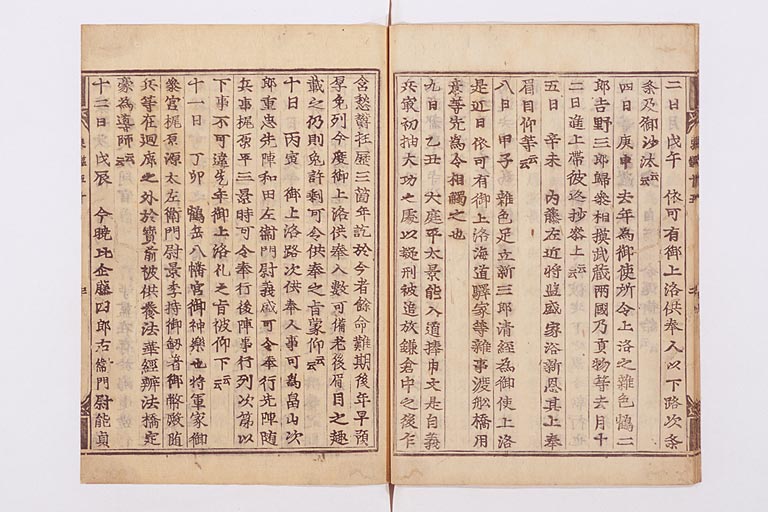 二日 戊午 依可有御上洛供奉人以下路次条
条及御沙汰云云
四日 庚申 去年為御使所令上洛之雜色鶴二
郎吉野三郎歸參相摸武藏兩國乃貢物等去月十
二日進上帶彼返抄參上云云
五日 辛未 内藤左近将監盛家浴新恩其上奉
眉目仰等云云
八日 甲子 雜色足立新三郎清經為御使上洛
是近日依可有御上洛海道驛家等雜事渡舩橋用
意等先為令相觸之也
九日 乙丑 大庭平太景能入道捧申文是自義
兵最初抽大功之處以疑刑被追放鎌倉中之後乍
含愁欝抂歴三箇年訖於今者餘命難期後年早預
厚免列今度御上洛供奉人數可備老後眉目之趣
載之仍則免許剰可令供奉之旨蒙仰云云
十日 丙寅 御上洛路次供奉人事可為畠山次
郎重忠先陣和田左衞門尉義盛可令奉行先陣随
兵事梶原平三景時可令奉行後陣事行列次第以
下事不可違先年御上洛礼之旨被仰下云云
十一日 丁卯 鶴岳八幡宮御神樂也将軍家御
參宮梶原源太左衞門尉景季持御劔着御幣殿随
兵等在廻廊之外於寳前被供養法華經辨法橋定
豪為導師云云
十二日 戊辰 今曉比企藤四郎右衞門尉能員